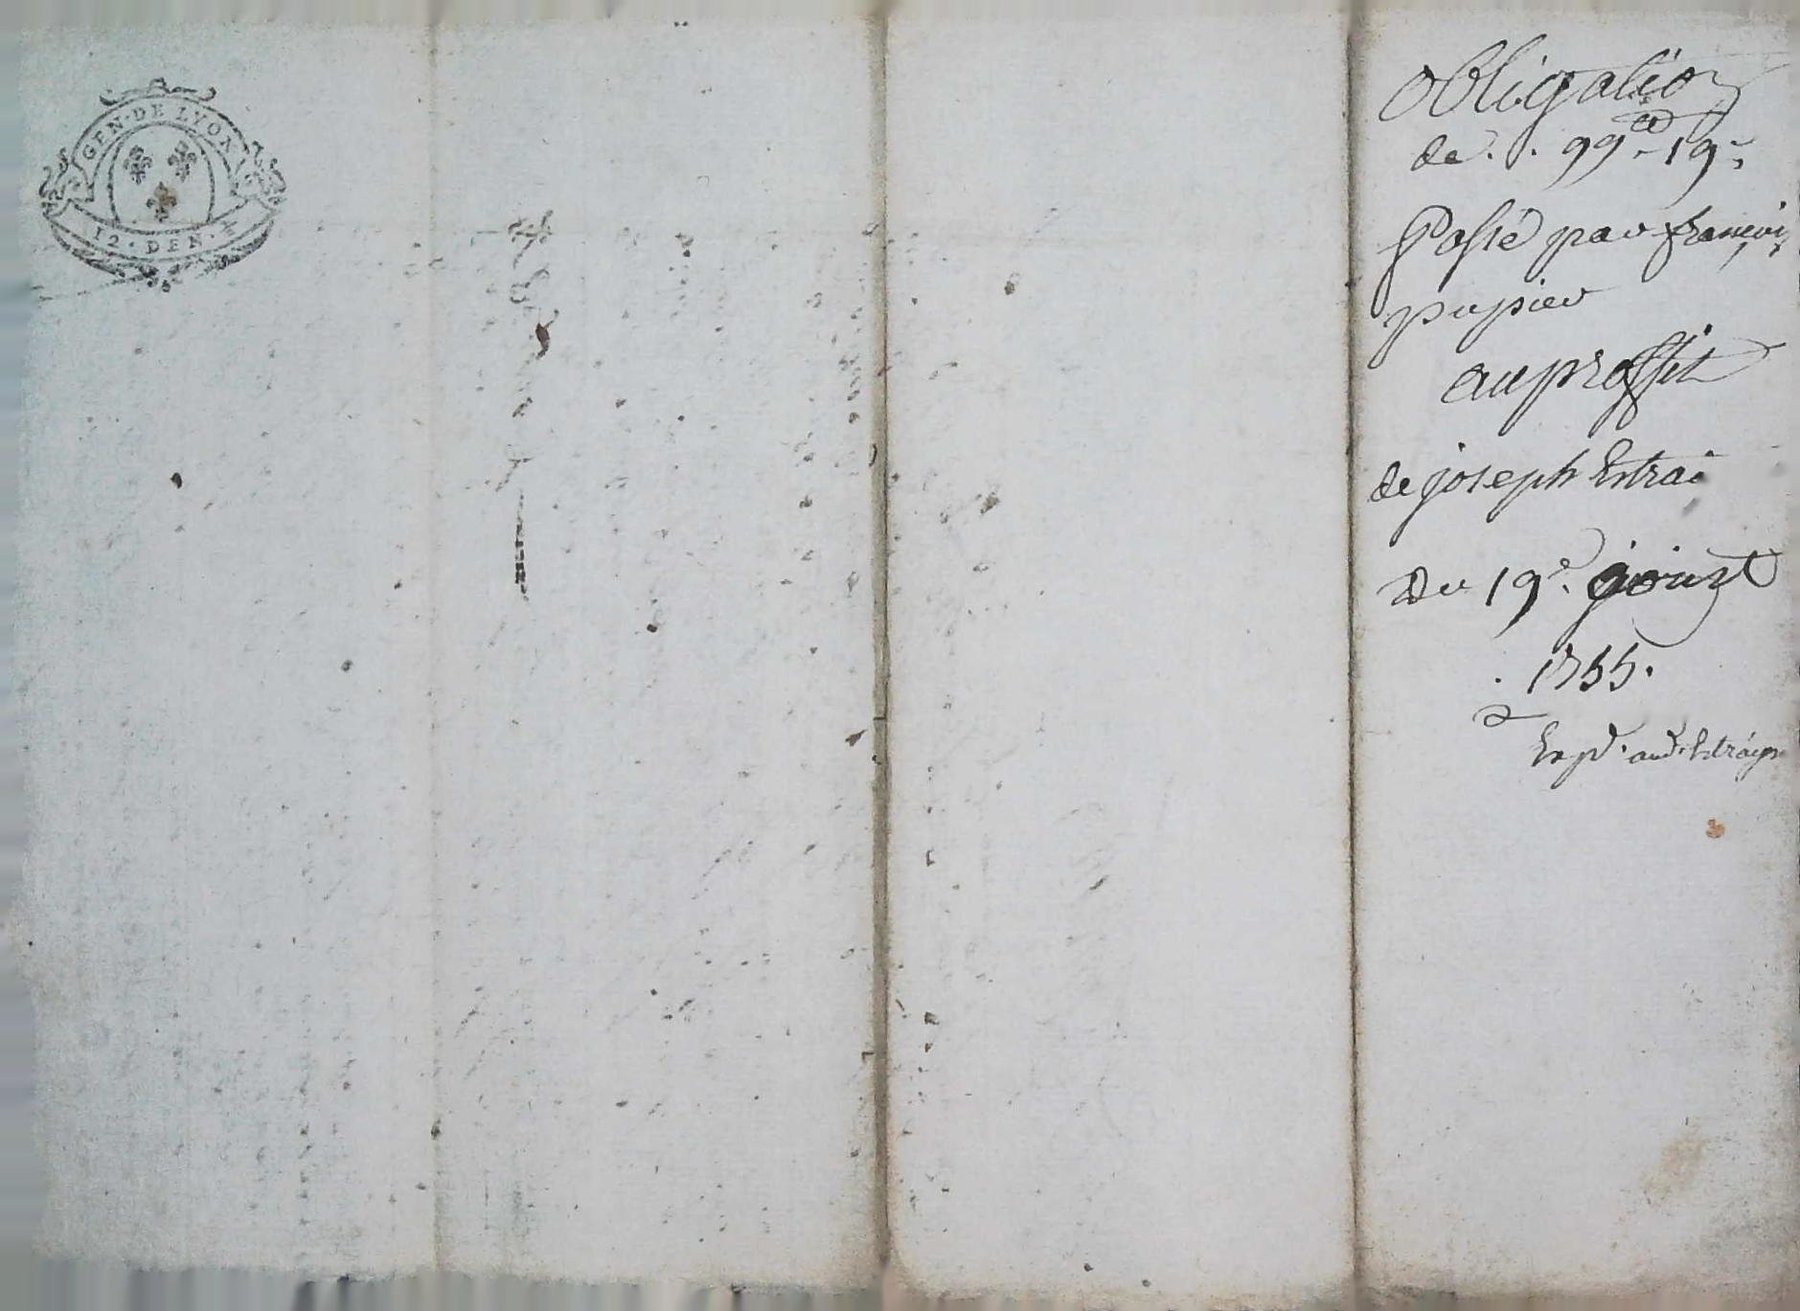 GEN · DE LYON
12 · DEN ·
obligation
de . . 99# 19s
Passé par francois
pupier
au proffit
de joseph Estrai
Du 19e aoust
1755.
Exp.d aud. Estra